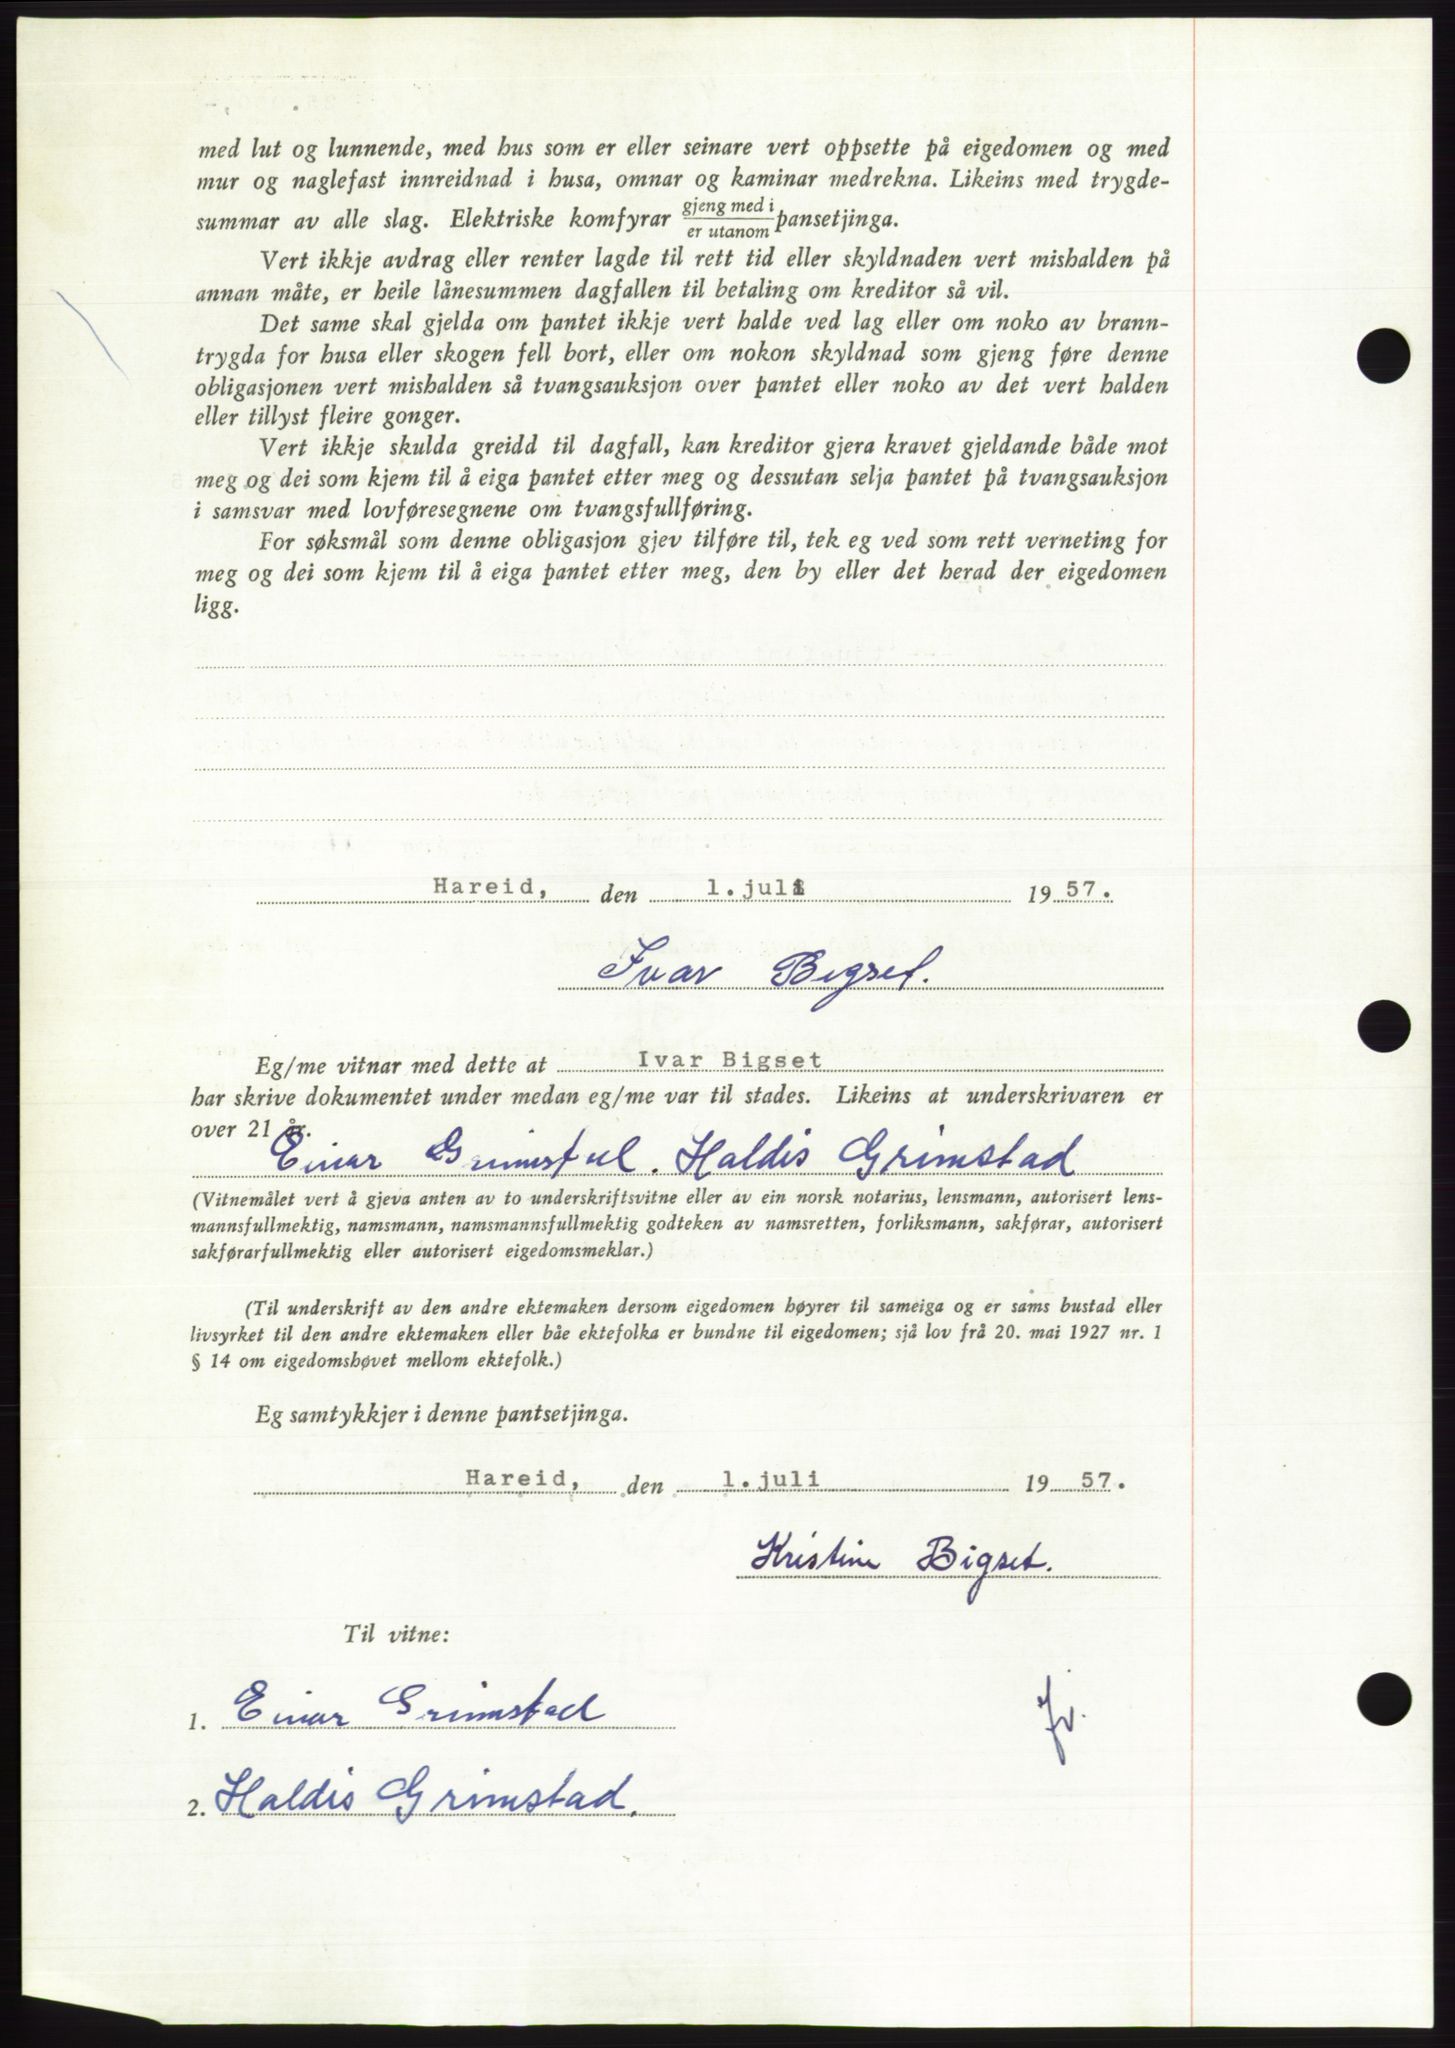 med lut og lunnende, med hus som er eller seinare vert oppsette på eigedomen og med
mur og naglefast innreidnad i husa, omnar og kaminar medrekna. Likeins med trygde-
summar av alle slag. Elektriske komfyrar gjeng med i / er utanom pansetjinga.
Vert ikkje avdrag eller renter lagde til rett tid eller skyldnaden vert mishalden på
annan måte, er heile lånesummen dagfallen til betaling om kreditor så vil.
Det same skal gjelda om pantet ikkje vert halde ved lag eller om noko av brann-
trygda for husa eller skogen fell bort, eller om nokon skyldnad som gjeng føre denne
obligasjonen vert mishalden så tvangsauksjon over pantet eller noko av det vert halden
eller tillyst fleire gonger.
Vert ikkje skulda greidd til dagfall, kan kreditor gjera kravet gjeldande både mot
meg og dei som kjem til å eiga pantet etter meg og dessutan selja pantet på tvangsauksjon
i samsvar med lovføresegnene om tvangsfullføring.
For søksmål som denne obligasjon gjev tilføre til, tek eg ved som rett verneting for
meg og dei som kjem til å eiga pantet etter meg, den by eller det herad der eigedomen
ligg.
Hareid, den 1. juli 19 57.
Ivar Bigset.
Eg/me vitnar med dette at Ivar Bigset
har skrive dokumentet under medan eg/me var til stades. Likeins at underskrivaren er
over 21 år.
Einar Grimstad. Haldis Grimstad
(Vitnemålet vert å gjeva anten av to underskriftsvitne eller av ein norsk notarius, lensmann, autorisert lens-
mannsfullmektig, namsmann, namsmannsfullmektig godteken av namsretten, forliksmann, sakførar, autorisert
sakførarfullmektig eller autorisert eigedomsmeklar.)
(Til underskrift av den andre ektemaken dersom eigedomen høyrer til sameiga og er sams bustad eller
livsyrket til den andre ektemaken eller båe ektefolka er bundne til eigedomen; sjå lov frå 20. mai 1927 nr. 1
§ 14 om eigedomshøvet mellom ektefolk.)
Eg samtykkjer i denne pantsetjinga.
Hareid, den 1. juli 19 57.
Kristine Bigset.
Til vitne:
1. Einar Grimstad
2. Haldis Grimstad.